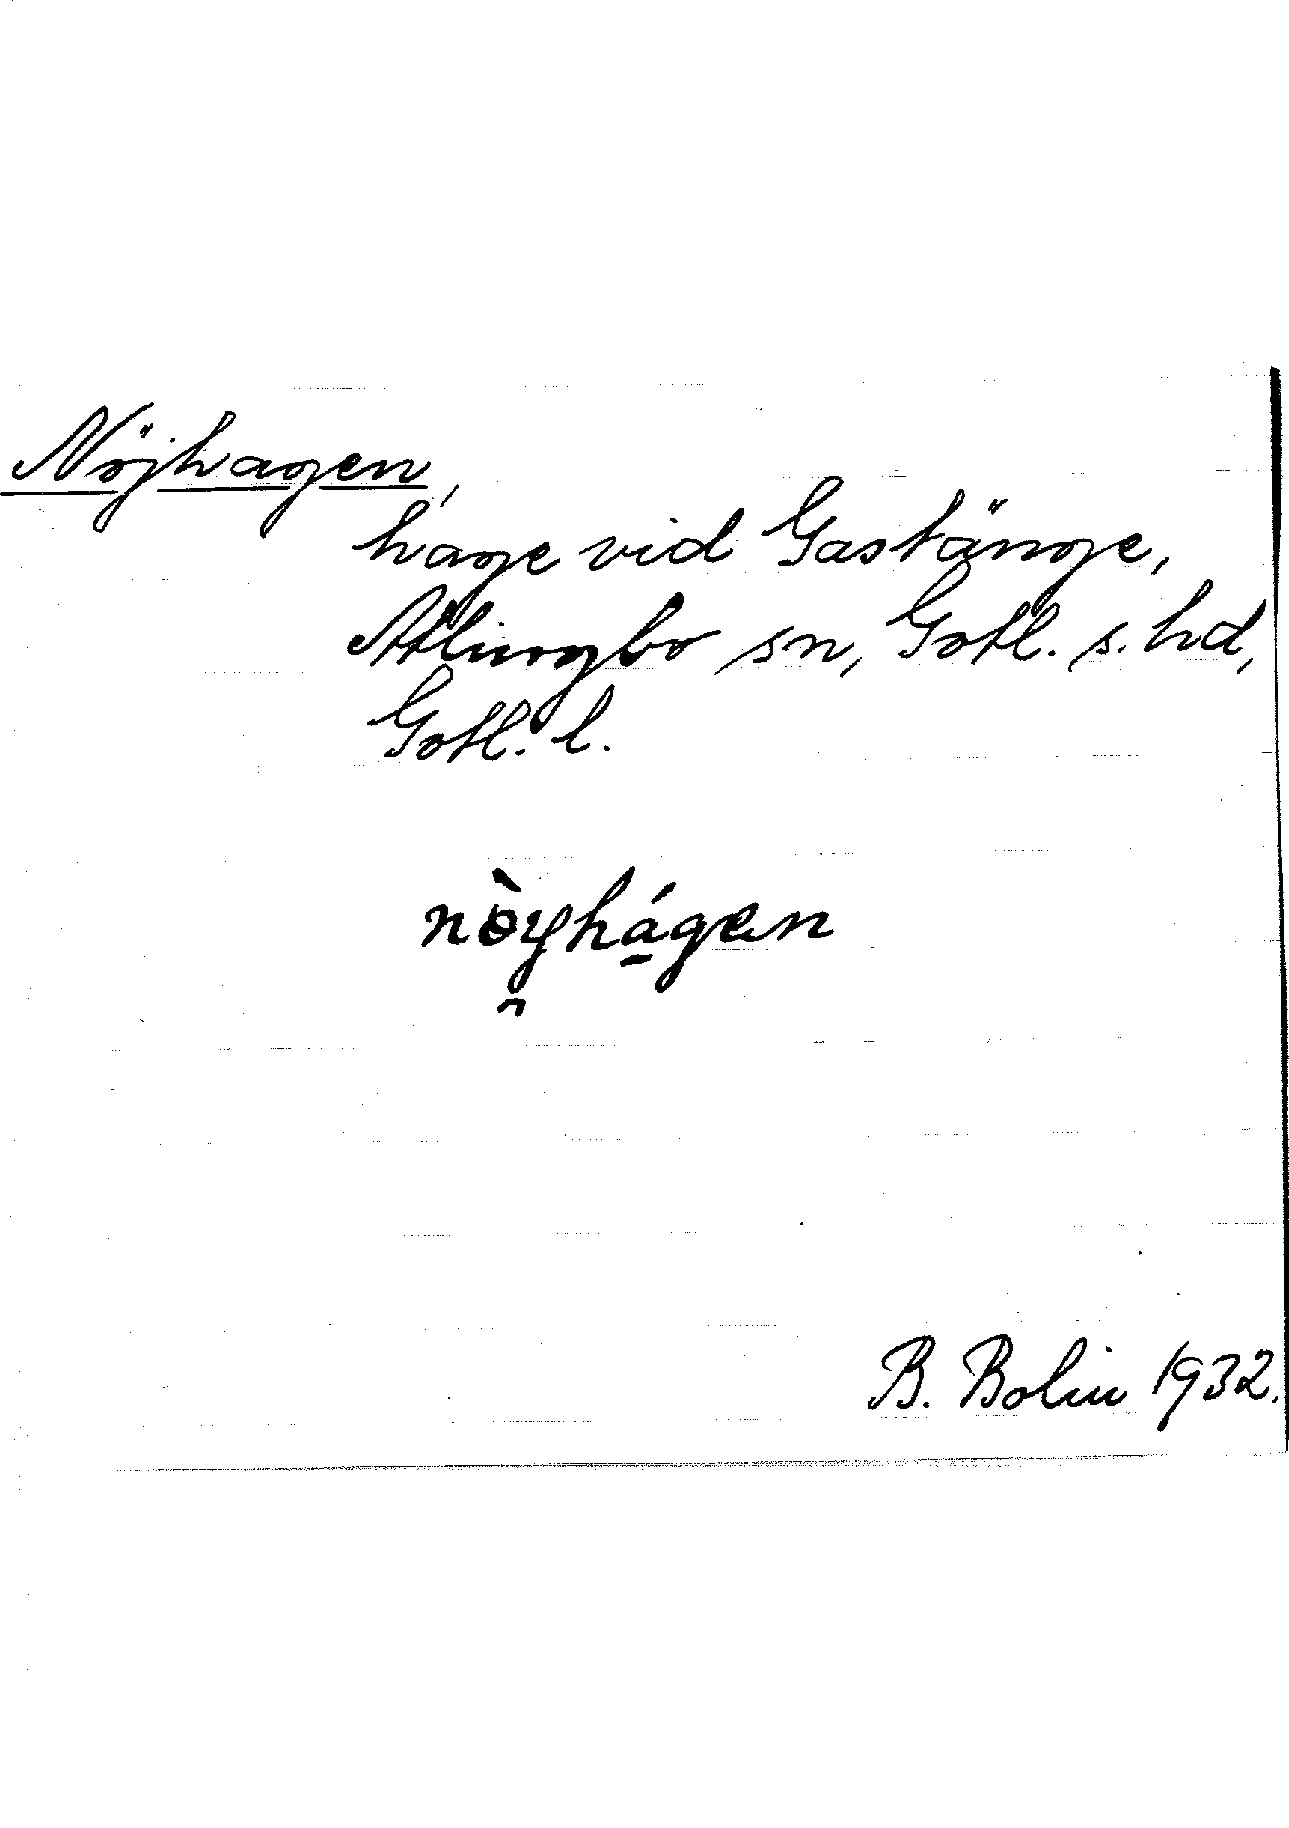 Nöjhagen,
hage vid Gastänge,
Atlingbo sn, Gotl. s. hd,
Gotl. l.
nɵ̀y̯há̱gen
B. Bolin 1932.